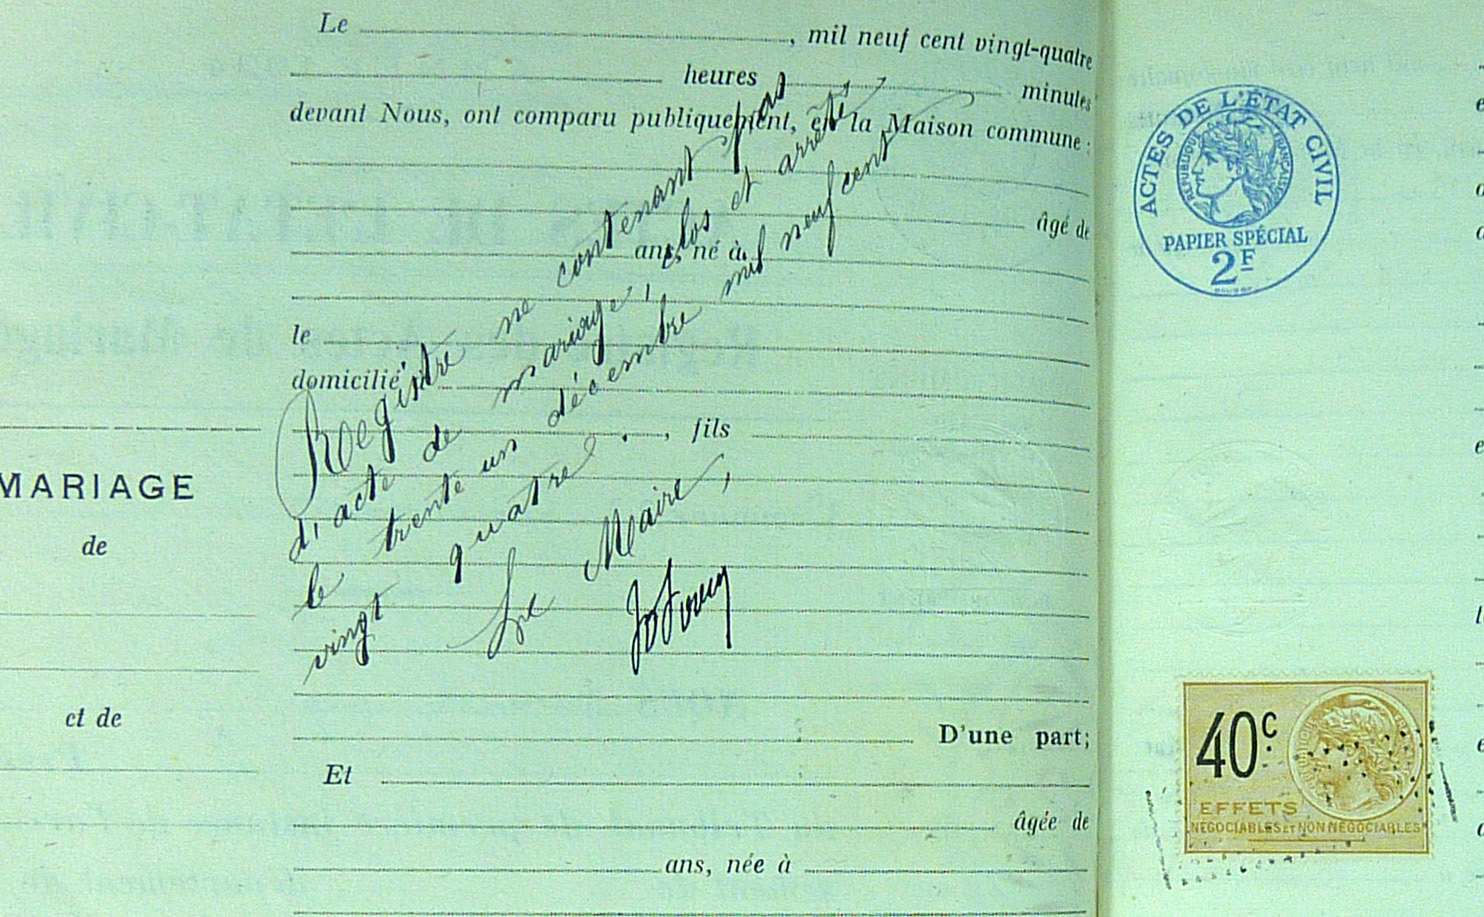 Le , mil neuf cent vingt-quatre
heures minutes
devant Nous, ont comparu publiquement, en la Maison commune :
âgé de
ans, né à
le
domicilié à
, fils
D'une part;
Et
âgée de
ans, née à
Registre ne contenant pas
d'acte de mariage, clos et arrêté
le trente un décembre mil neuf cent
vingt quatre.
Le Maire,
MARIAGE
de
et de
ACTES DE L'ÉTAT CIVIL
RÉPUBLIQUE FRANÇAISE
PAPIER SPÉCIAL
2F
40c
EFFETS
NÉGOCIABLES ET NON NÉGOCIABLES